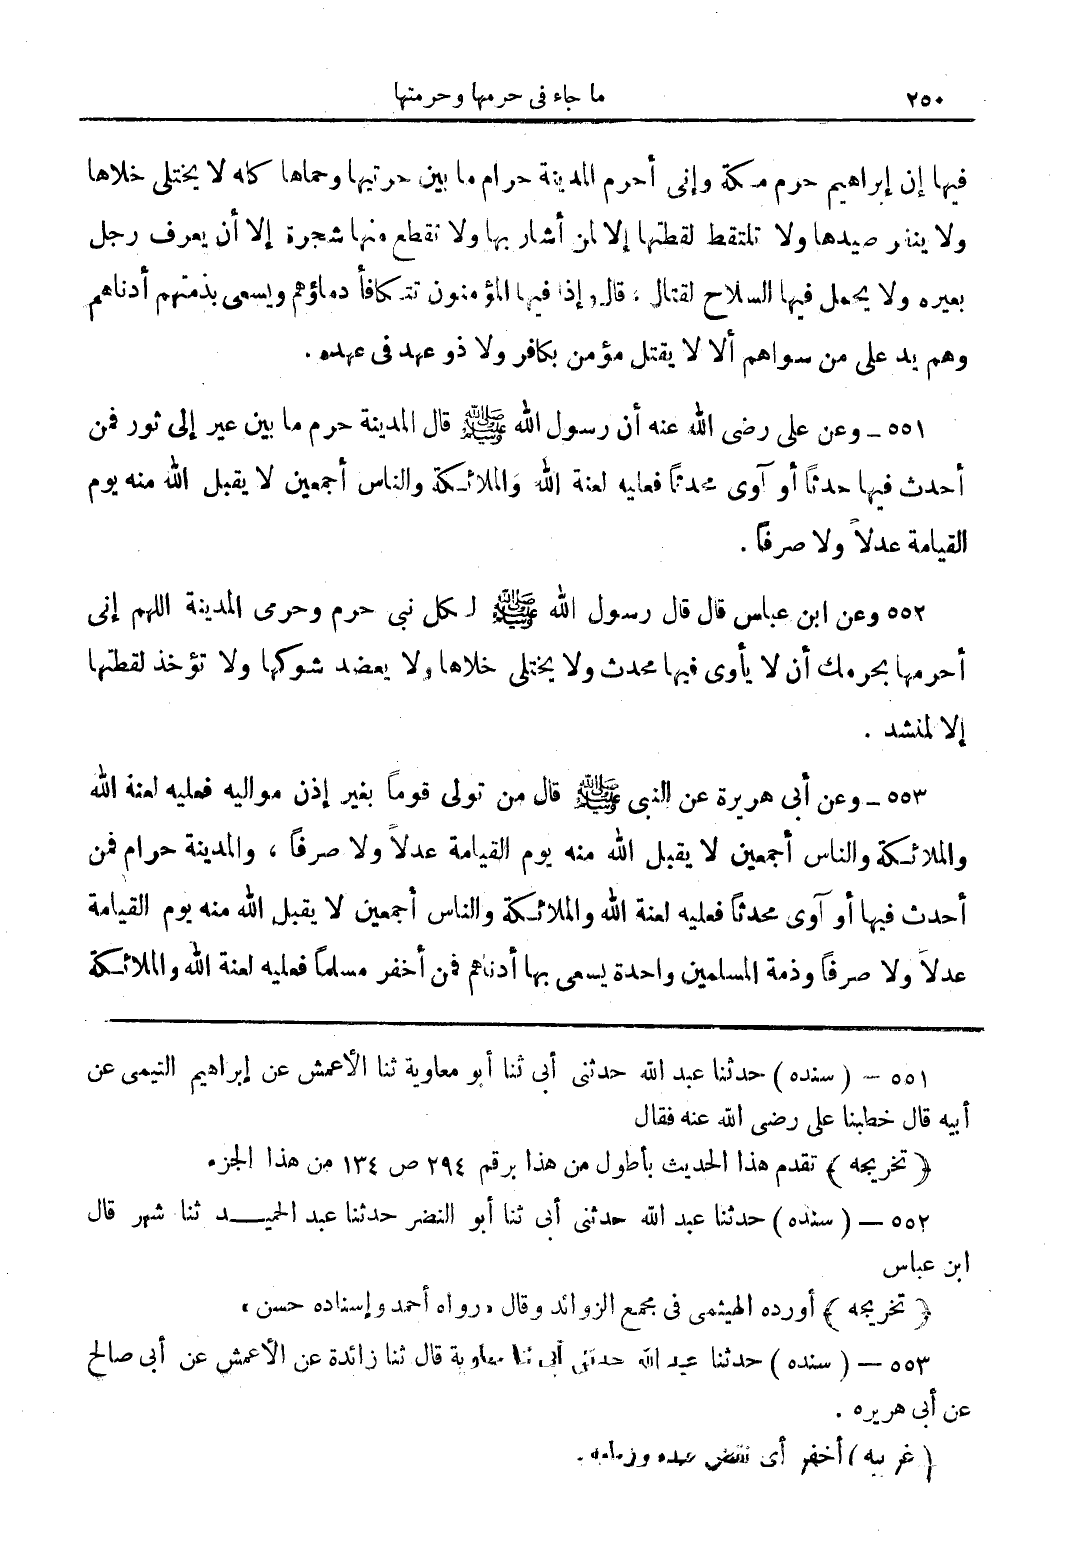 ٢٥٠ ما جاء فى حرمها وحرمتها
فيها إن إبراهيم حرم مكة وإنى أحرم المدينة حرام ما بين حرتيها وحماها كله لا يختلى خلاها
ولا ينفر صيدها ولا تلتقط لقطتها إلا لمن أشار بها ولا تقطع منها شجرة إلا أن يعرف رجل
بعيره ولا يحمل فيها السلاح لقتال ، قال وإذا فيها المؤمنون تتكافأ دماؤهم ويسعى بذمتهم أدناهم
وهم يد على من سواهم ألا لا يقتل مؤمن بكافر ولا ذو عهد فى عهده .
٥٥١ ـ وعن على رضى الله عنه أن رسول الله ﷺ قال المدينة حرم ما بين عير إلى ثور فمن
أحدث فيها حدثاً أو آوى محدثاً فعليه لعنة الله والملائكة والناس أجمعين لا يقبل الله منه يوم
القيامة عدلاً ولا صرفاً .
٥٥٢ وعن ابن عباس قال قال رسول الله ﷺ لكل نبى حرم وحرمى المدينة اللهم إنى
أحرمها بحرمك أن لا يأوى فيها محدث ولا يختلى خلاها ولا يعضد شوكها ولا تؤخذ لقطتها
إلا لمنشد .
٥٥٣ ـ وعن أبى هريرة عن النبى ﷺ قال من تولى قوماً بغير إذن مواليه فعليه لعنة الله
والملائكة والناس أجمعين لا يقبل الله منه يوم القيامة عدلاً ولا صرفاً ، والمدينة حرام فمن
أحدث فيها أو آوى محدثاً فعليه لعنة الله والملائكة والناس أجمعين لا يقبل الله منه يوم القيامة
عدلاً ولا صرفاً وذمة المسلمين واحدة يسعى بها أدناهم فمن أخفر مسلماً فعليه لعنة الله والملائكة
٥٥١ — ( سنده ) حدثنا عبد الله حدثنى أبى ثنا أبو معاوية ثنا الأعمش عن إبراهيم التيمى عن
أبيه قال خطبنا على رضى الله عنه فقال
﴿ تخريجه ﴾ تقدم هذا الحديث بأطول من هذا برقم ٢٩٤ ص ١٣٤ من هذا الجزء
٥٥٢ — ( سنده ) حدثنا عبد الله حدثنى أبى ثنا أبو النضر حدثنا عبد الحميد ثنا شهر قال
ابن عباس
﴿ تخريجه ﴾ أورده الهيثمى فى مجمع الزوائد وقال « رواه أحمد وإسناده حسن »
٥٥٣ — ( سنده ) حدثنا عبد الله حدثنى أبى ثنا معاوية قال ثنا زائدة عن الأعمش عن أبى صالح
عن أبى هريره .
( غريبه ) أخفر أى نقض عهده وزمامه .